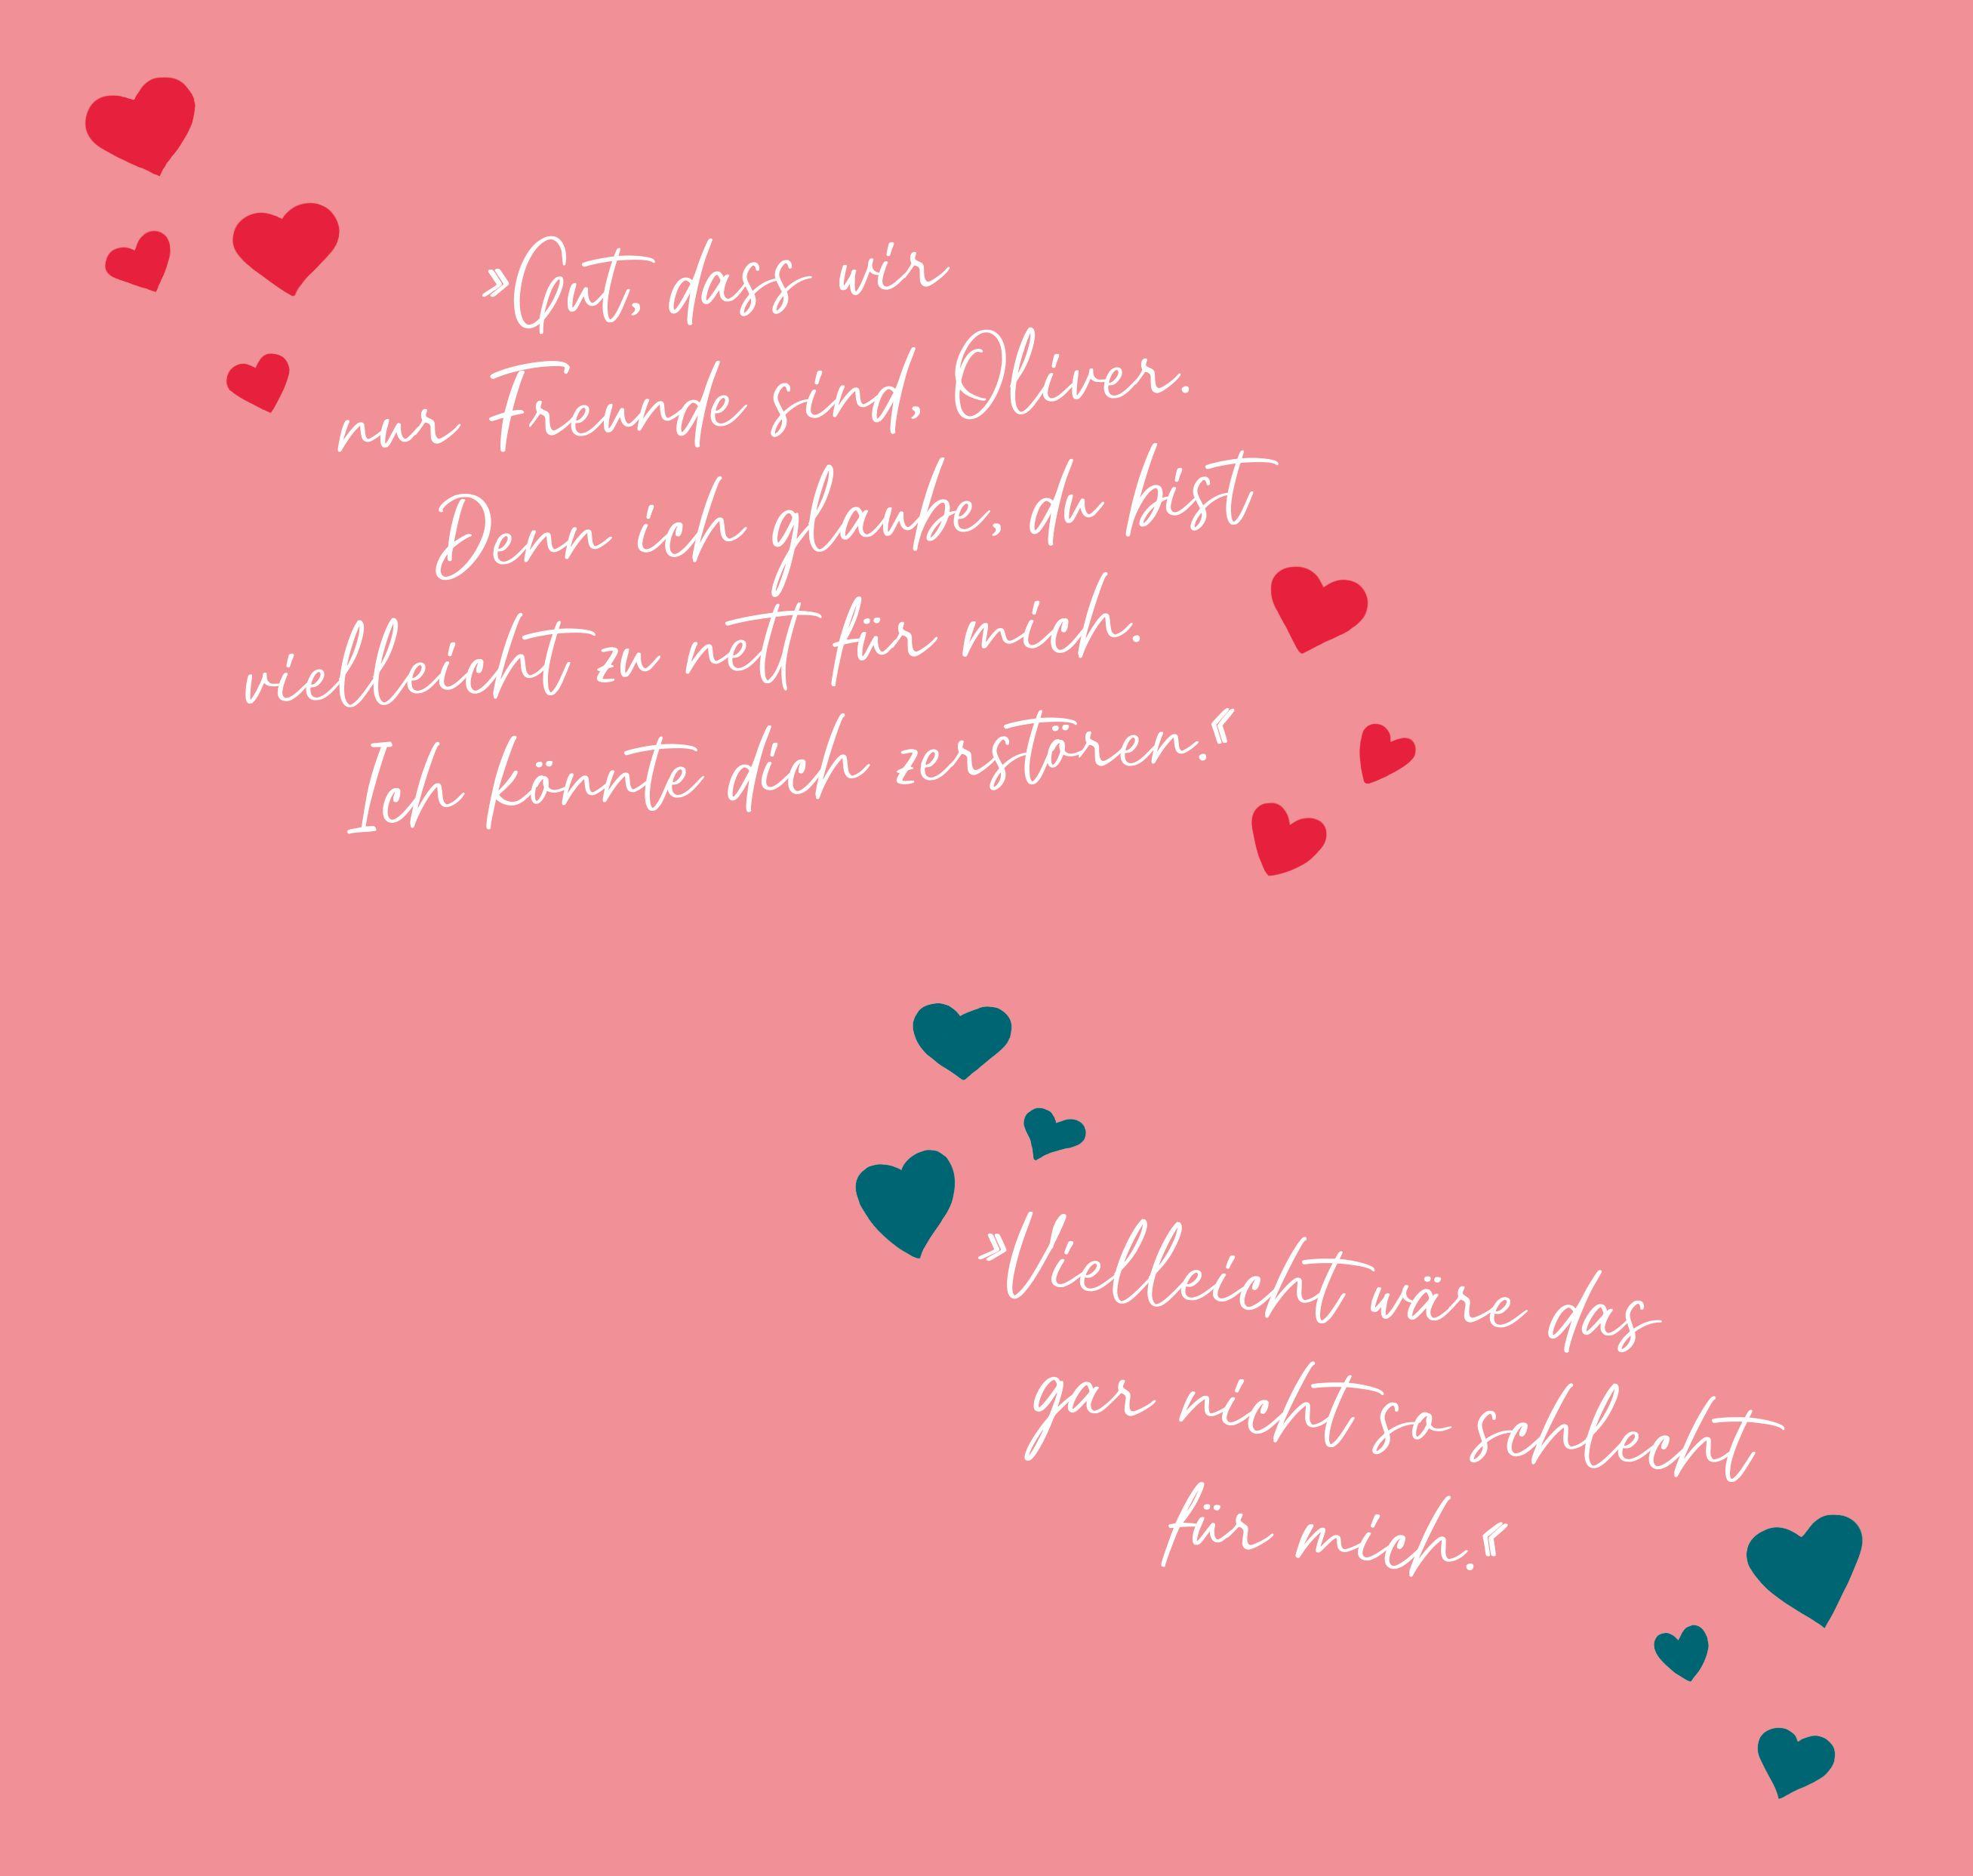 »Gut, dass wir
nur Freunde sind, Oliver.
Denn ich glaube, du bist
vielleicht zu nett für mich.
Ich könnte dich zerstören.«
»Vielleicht wäre das
gar nicht so schlecht
für mich.«